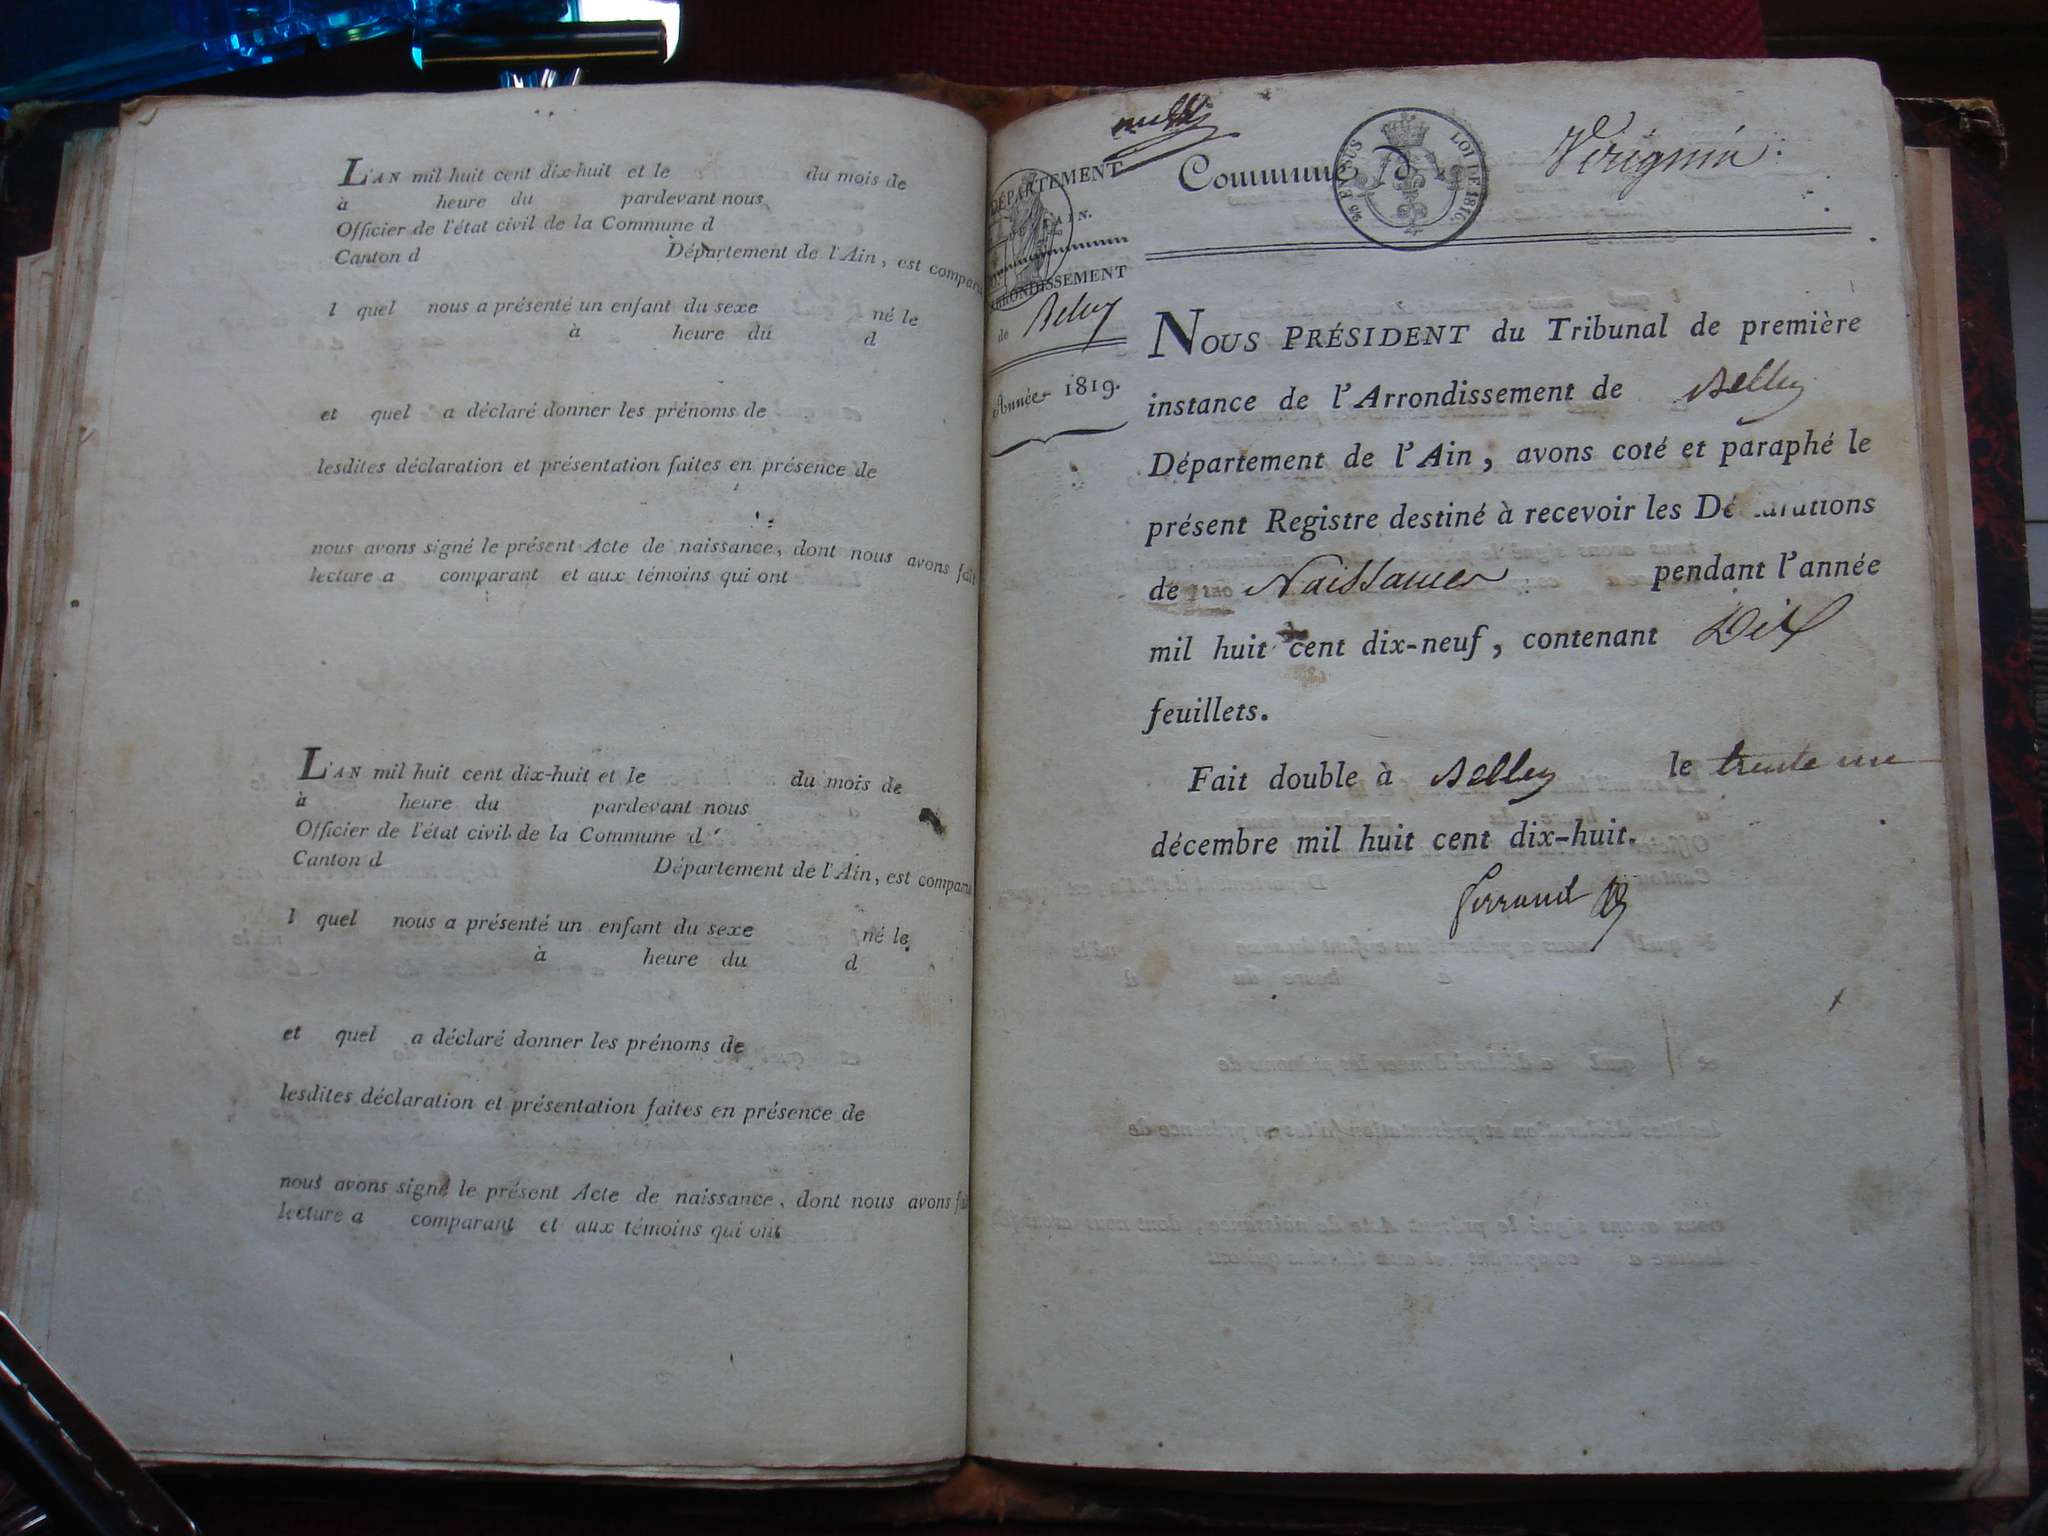 L'AN mil huit cent dix-huit et le du mois de
à heure du pardevant nous
Officier de l'état civil de la Commune d
Canton d Département de l'Ain, est comparu
l quel nous a présenté un enfant du sexe né le
à heure du d
et quel a déclaré donner les prénoms de
lesdites déclaration et présentation faites en présence de
nous avons signé le présent Acte de naissance, dont nous avons fait
lecture a comparant et aux témoins qui ont
L'AN mil huit cent dix-huit et le du mois de
à heure du pardevant nous
Officier de l'état civil de la Commune d
Canton d Département de l'Ain, est comparu
l quel nous a présenté un enfant du sexe né le
à heure du d
et quel a déclaré donner les prénoms de
lesdites déclaration et présentation faites en présence de
nous avons signé le présent Acte de naissance, dont nous avons fait
lecture a comparant et aux témoins qui ont
DÉPARTEMENT
AIN.
ARRONDISSEMENT
de Belley
Année 1819.
Commune d Virignin
LOI DE 1816
NOUS PRÉSIDENT du Tribunal de première
instance de l'Arrondissement de Belley
Département de l'Ain, avons coté et paraphé le
présent Registre destiné à recevoir les Déclarations
de Naissances pendant l'année
mil huit cent dix-neuf, contenant Dix
feuillets.
Fait double à Belley le trente un
décembre mil huit cent dix-huit.